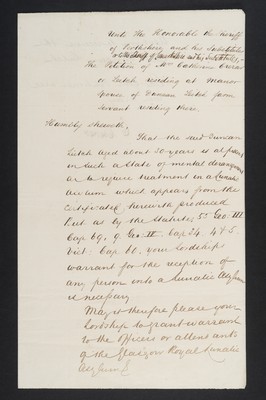 Unto The Honorable the Sheriff
of Rothesay and his Substitutes
or the Sheriff of and his Substitutes,
The Petition of Mrs Catherine
or Leitch residing at Manor
Spouse of Duncan Leitch farm
Servant residing there.
Humbly Sheweth,
That the said Duncan
Leitch aged about 30 years is at present
in such a state of mental derangement
as to require treatment in a Lunatic
Asylum which appears from the
Certificates herewith produced
but as by the Statutes 55 Geo III
Cap 69, 9 Geo IV Cap 34 4 & 5
Vict. Cap 60, your Lordships
warrant for the reception of
any person into a Lunatic Asylum
is necessary
May it therefore please your
Lordship to grant warrant
to the officers or attendants
of the Glasgow Royal Lunatic
Asylum